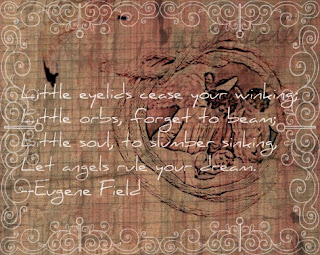 Little eyelids cease your winking;
Little orbs, forget to beam;
Little soul, to slumber sinking,
Let angels rule your dream.
-Eugene Field